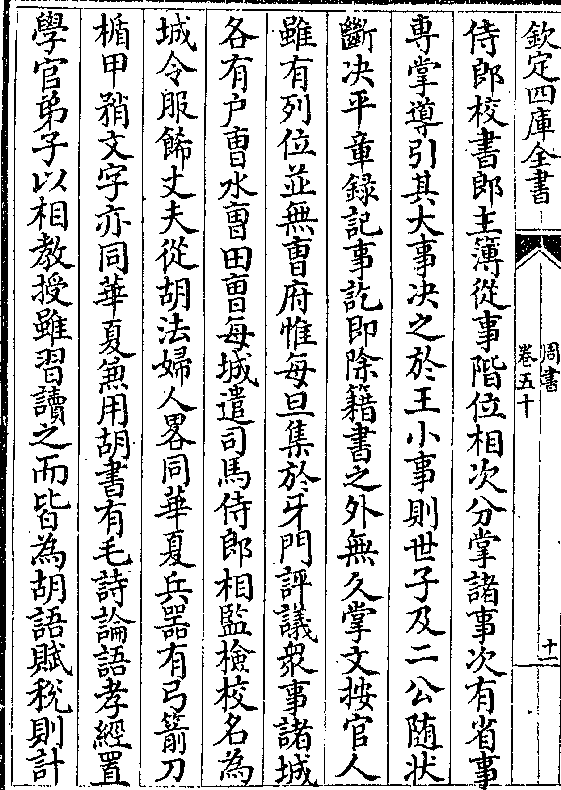 欽定四庫全書
周書
卷五十
十一
侍郎校書郎主簿從事階位相次分掌諸事次有省事
專掌導引其大事决之於王小事則世子及二公随狀
斷决平章錄記事訖即除籍書之外無久掌文按官人
雖有列位並無曹府惟每旦集於牙門評議衆事諸城
各有户曹水曹田曹每城遣司馬侍郎相監檢校名為
城令服飾丈夫從胡法婦人畧同華夏兵器有弓箭刀
楯甲矟文字亦同華夏兼用胡書有毛詩論語孝經置
學官弟子以相教授雖習讀之而皆為胡語賦稅則計